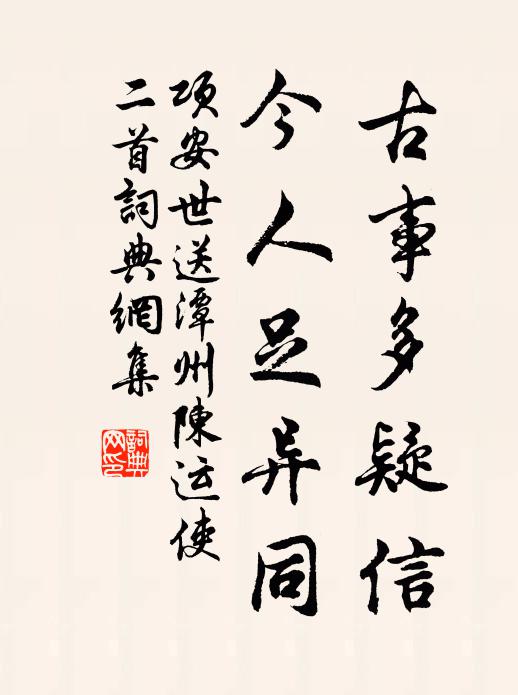 古事多疑信
今人足异同
项安世送潭州陳运使
二首詞典網集
詞典
网印